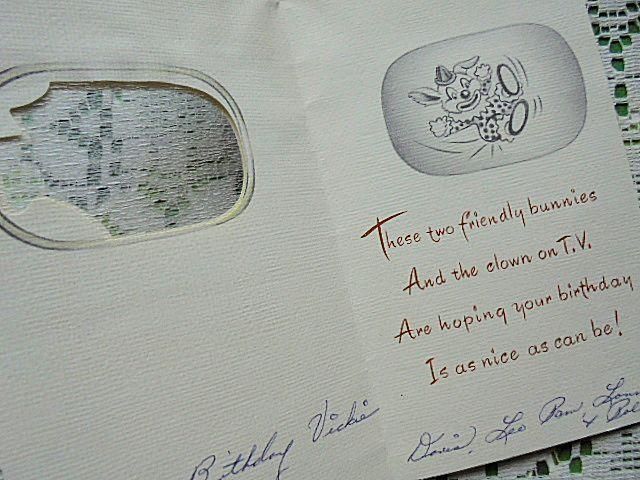 These two friendly bunnies
And the clown on T.V.
Are hoping your birthday
Is as nice as can be!
Birthday Vickie
Doris, Leo Pam,